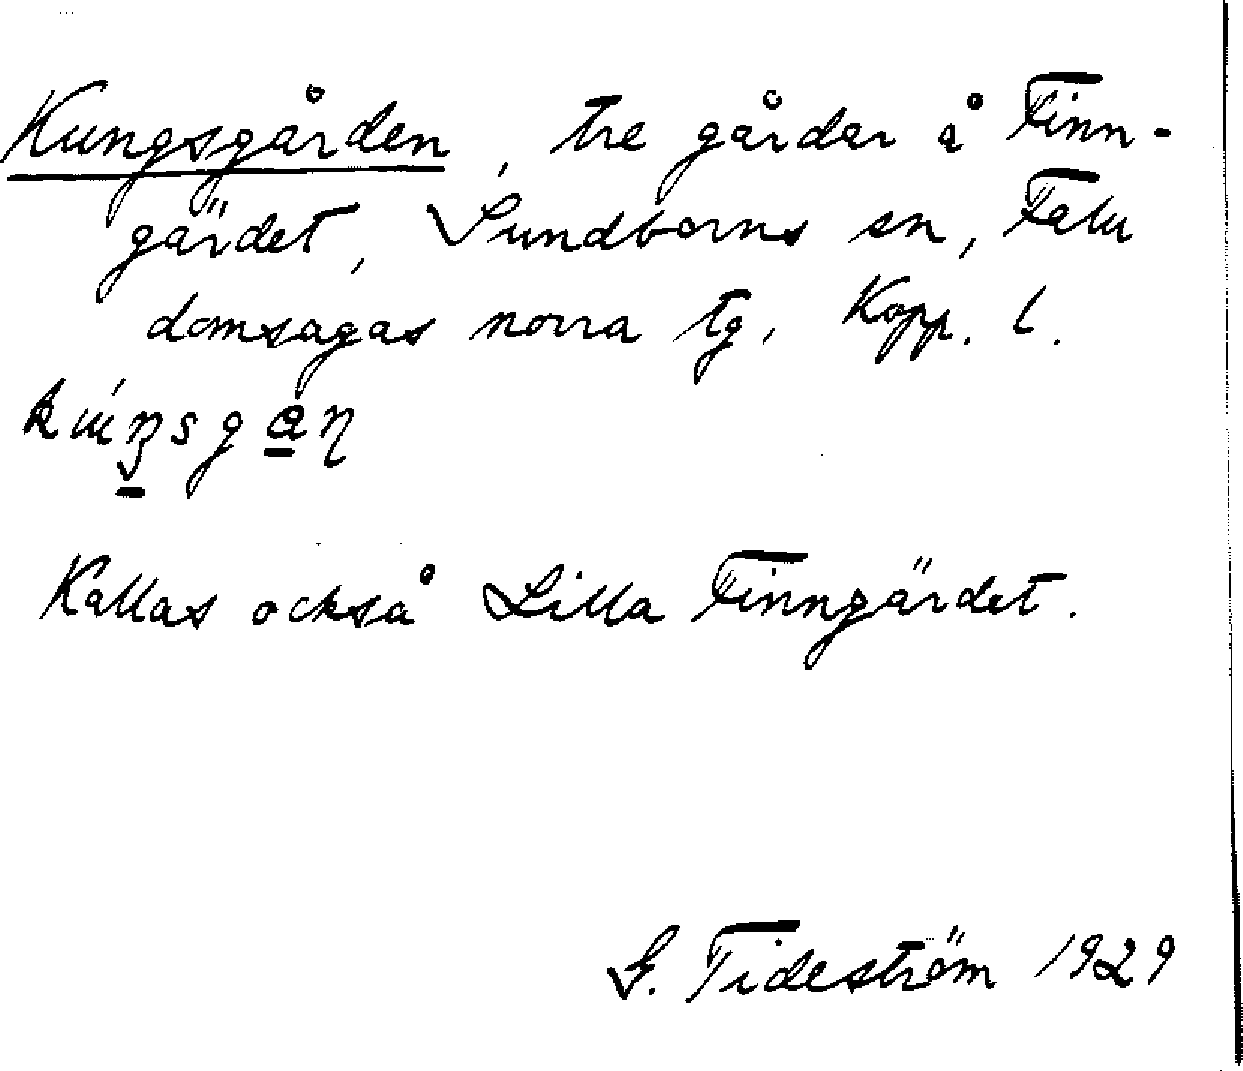 Kungsgården, tre gårdar å Finn-
gärdet, Sundborns sn, Falu
domsagas norra tg, Kopp. l.
Kallas också Lilla Finngärdet.
G. Tideström 1929